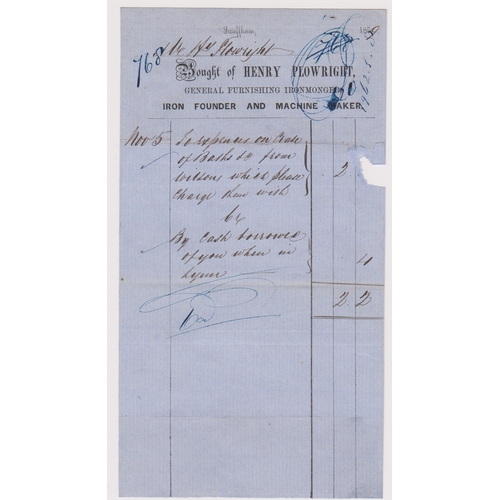 Swaffham, 185
768 Hy Plowright 768
Bought of HENRY PLOWRIGHT,
GENERAL FURNISHING IRONMONGER,
IRON FOUNDER AND MACHINE MAKER.
Nov 5 To expences on Crate
of Baths &c from 2
Wilsons which please
Charge them with
Cr
By Cash borrowed
of you when in 4
Lynn
2 2